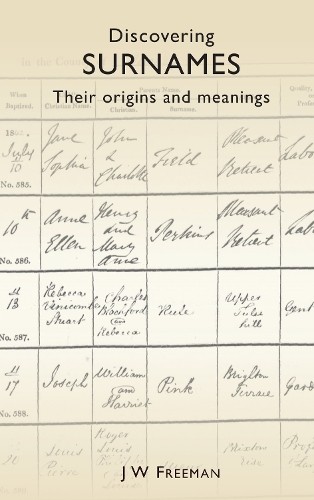 Discovering
SURNAMES
Their origins and meanings
In the
When Baptized.
Christian Name.
Parents Name.
Christian.
Surname.
Quality,
July
10
No. 585.
Jane
Sophia
John
&
Charlotte
Field
Pleasant
Retreat
10th
No. 586.
Anne
Ellen
Henry
and
Mary
Anne
Perkins
Pleasant
Retreat
13
No. 587.
Rebecca
Stuart
Charles
and
Rebecca
Upper
Tulse
hill
Gent
17
No. 588.
Joseph
William
and
Harriet
Pink
Brighton
Terrace
Gard
Louis
Pierre
Roger
Louis
J W FREEMAN